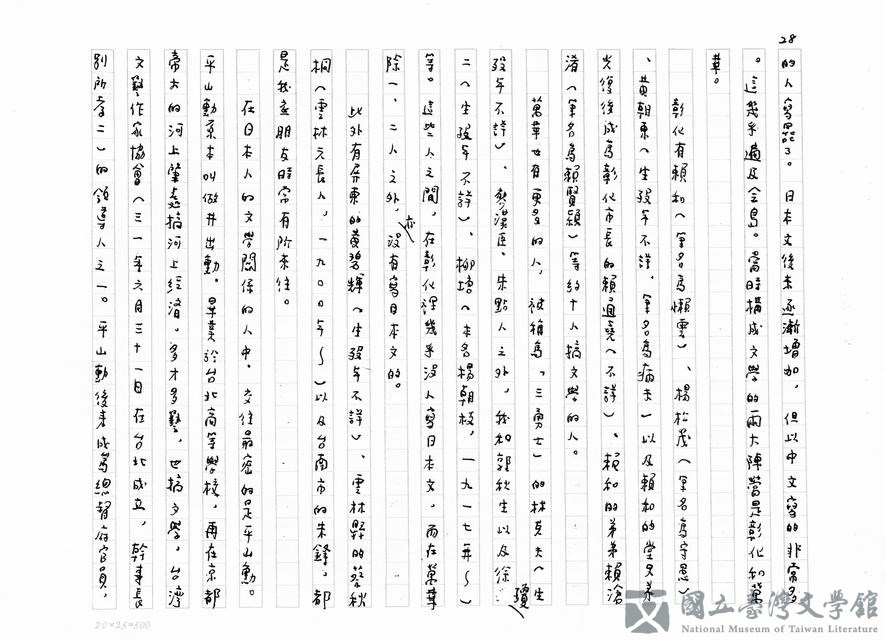 28
的人寫器了。日本文後來逐漸增加，但以中文寫的非常多
。這幾乎遍及全島。當時構成文學的兩大陣營是彰化和萬
華。
彰化有賴和（筆名為懶雲）、楊松茂（筆名為守愚）
、黃朝東（生歿年不詳，筆名為病夫）以及賴和的堂兄弟
光復後成為彰化市長的賴通堯（不詳）、賴和的弟弟賴滄
洧（筆名為賴賢穎）等約十人搞文學的人。
萬華也有更多的人，被稱為「三勇士」的林克夫（生
歿年不詳）、黎漢臣、朱點人之外，我和郭秋生以及徐瓊
二（生歿年不詳）、柳塘（本名楊朝枝，一九一七年～）
等。這些人之間，在彰化裡幾乎沒人寫日本文，而在萬華
除一、二人之外，亦沒有寫日本文的。
此外有屏東的黃碧輝（生歿年不詳）、雲林縣的蔡秋
桐（雲林元長人，一九〇〇年～）以及台南市的朱鋒，都
是我查朋友時常有所來往。
在日本人的文學關係的人中，交往最密的是平山勳。
平山勳原本叫做井出勳。畢業於台北高等學校，再在京都
帝大的河上肇處搞河上經濟。多才多藝，也搞文學，台灣
文藝作家協會（三一年六月三十一日在台北成立，幹事長
別所孝二）的領導人之一。平山勳後來成為總督府官員，
20×25=500
國立臺灣文學館
National Museum of Taiwan Literature